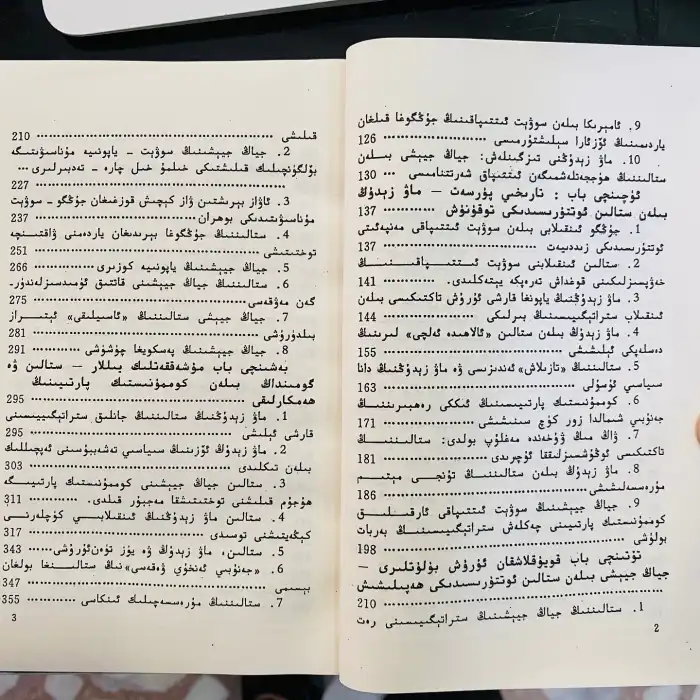 9. ئامېرىكا بىلەن سوۋېت ئىتتىپاقىنىڭ جۇڭگوغا قىلغان
ياردىمىنىڭ ئۆزئارا سېلىشتۇرمىسى ............ 126
10. ماۋ زېدۇڭنى تىزگىنلەش: جياڭ جېيشى بىلەن
ستالىننىڭ ھۆججەتلەشمىگەن ئىتتىپاق شەرتنامىسى ... 130
ئۈچىنچى باب : تارىخىي پۇرسەت — ماۋ زېدۇڭ
بىلەن ستالىن ئوتتۇرىسىدىكى توقۇنۇش ............ 137
1. جۇڭگو ئىنقىلابى بىلەن سوۋېت ئىتتىپاقى مەنپەئىتى
ئوتتۇرىسىدىكى زىددىيەت ............ 137
2. ستالىن ئىنقىلابنى سوۋېت ئىتتىپاقىنىڭ
خەۋپسىزلىكىنى قوغداش تەرەپكە يېتەكلىدى. ............ 141
3. ماۋ زېدۇڭنىڭ ياپونغا قارشى ئۇرۇش تاكتىكىسى بىلەن
ئىنقىلاب ستراتېگىيىسىنىڭ بىرلىكى ............ 144
4. ماۋ زېدۇڭ بىلەن ستالىن «ئالاھىدە ئەلچى» لىرىنىڭ
دەسلەپكى ئېلىشىشى ............ 155
5. ستالىننىڭ «تازىلاش» ئەندىزىسى ۋە ماۋ زېدۇڭنىڭ دانا
سىياسىي ئۇسۇلى ............ 163
6. كوممۇنىستىك پارتىيىسىنىڭ ئىككى رەھبىرىنىڭ
جەنۇبىي شىمالدا زور كۈچ سىنىشىشى ............ 171
7. ۋاڭ مىڭ ۋۇخەندە مەغلۇپ بولدى: ستالىننىڭ
تاكتىكىسى ئوڭۇشسىزلىققا ئۇچرىدى ............ 181
8. ماۋ زېدۇڭ بىلەن ستالىننىڭ تۇنجى مېتىم
مۇرەسسەلىشىشى ............ 186
9. جياڭ جېيشىنىڭ سوۋېت ئىتتىپاقى ئارقىلىق
كوممۇنىستىك پارتىيىنى چەكلەش ستراتېگىيىسىنىڭ بەربات
بولۇشى ............ 198
تۆتىنچى باب قويۇقلاشقان ئۇرۇش بۇلۇتلىرى —
جياڭ جېيشى بىلەن ستالىن ئوتتۇرىسىدىكى ھەپىلىشىش
............ 210
1. ستالىننىڭ جياڭ جېيشىنىڭ ستراتېگىيىسىنى رەت
2
قىلىشى ............ 210
2. جياڭ جېيشىنىڭ سوۋېت - ياپونىيە مۇناسىۋىتىگە
بۆلگۈنچىلىك قىلىشتىكى خىلمۇ خىل چارە - تەدبىرلىرى ...
............ 227
3. ئاۋاز بېرىشتىن ۋاز كېچىش قوزغىغان جۇڭگو - سوۋېت
مۇناسىۋىتىدىكى بوھران ............ 237
4. ستالىننىڭ جۇڭگوغا بېرىدىغان ياردەمنى ۋاقتىنچە
توختىتىشى ............ 251
5. جياڭ جېيشىنىڭ ياپونىيە كوزىرى ............ 266
6. ستالىننىڭ جياڭ جېيشىنى قاتتىق ئۈمىدسىزلەندۈر-
گەن مەۋقەسى ............ 275
7. جياڭ جېيشى ستالىننىڭ «ئاسىيلىقى» ئېتىراز
بىلدۈرۈشى ............ 281
8. جياڭ جېيشىنىڭ پەسكويغا چۈشۈشى ............ 291
بەشىنچى باب مۇشەققەتلىك يىللار — ستالىن ۋە
گومىنداڭ بىلەن كوممۇنىستىك پارتىيىنىڭ
ھەمكارلىقى ............ 295
1. ماۋ زېدۇڭنىڭ ستالىننىڭ جانلىق ستراتېگىيىسىنى
قارشى ئېلىشى ............ 295
2. ماۋ زېدۇڭ ئۆزىنىڭ سىياسىي تەشەببۇسىنى ئەپچىللىك
بىلەن تىكلىدى ............ 303
3. ستالىن جياڭ جېيشىنى كوممۇنىستىك پارتىيىگە
ھۇجۇم قىلىشنى توختىتىشقا مەجبۇر قىلدى. ............ 311
4. ستالىن ماۋ زېدۇڭنىڭ ئىنقىلابىي كۈچلەرنى
كېڭەيتىشنى توسىدى ............ 317
5. ستالىن، ماۋ زېدۇڭ ۋە يۈز تۈەن ئۇرۇشى ...... 343
6. «جەنۇبىي ئەنخۇي ۋەقەسى»نىڭ ستالىنغا بولغان
بېسىمى ............ 347
7. ستالىننىڭ مۇرەسسەچىلىك ئىنكاسى ............ 355
3